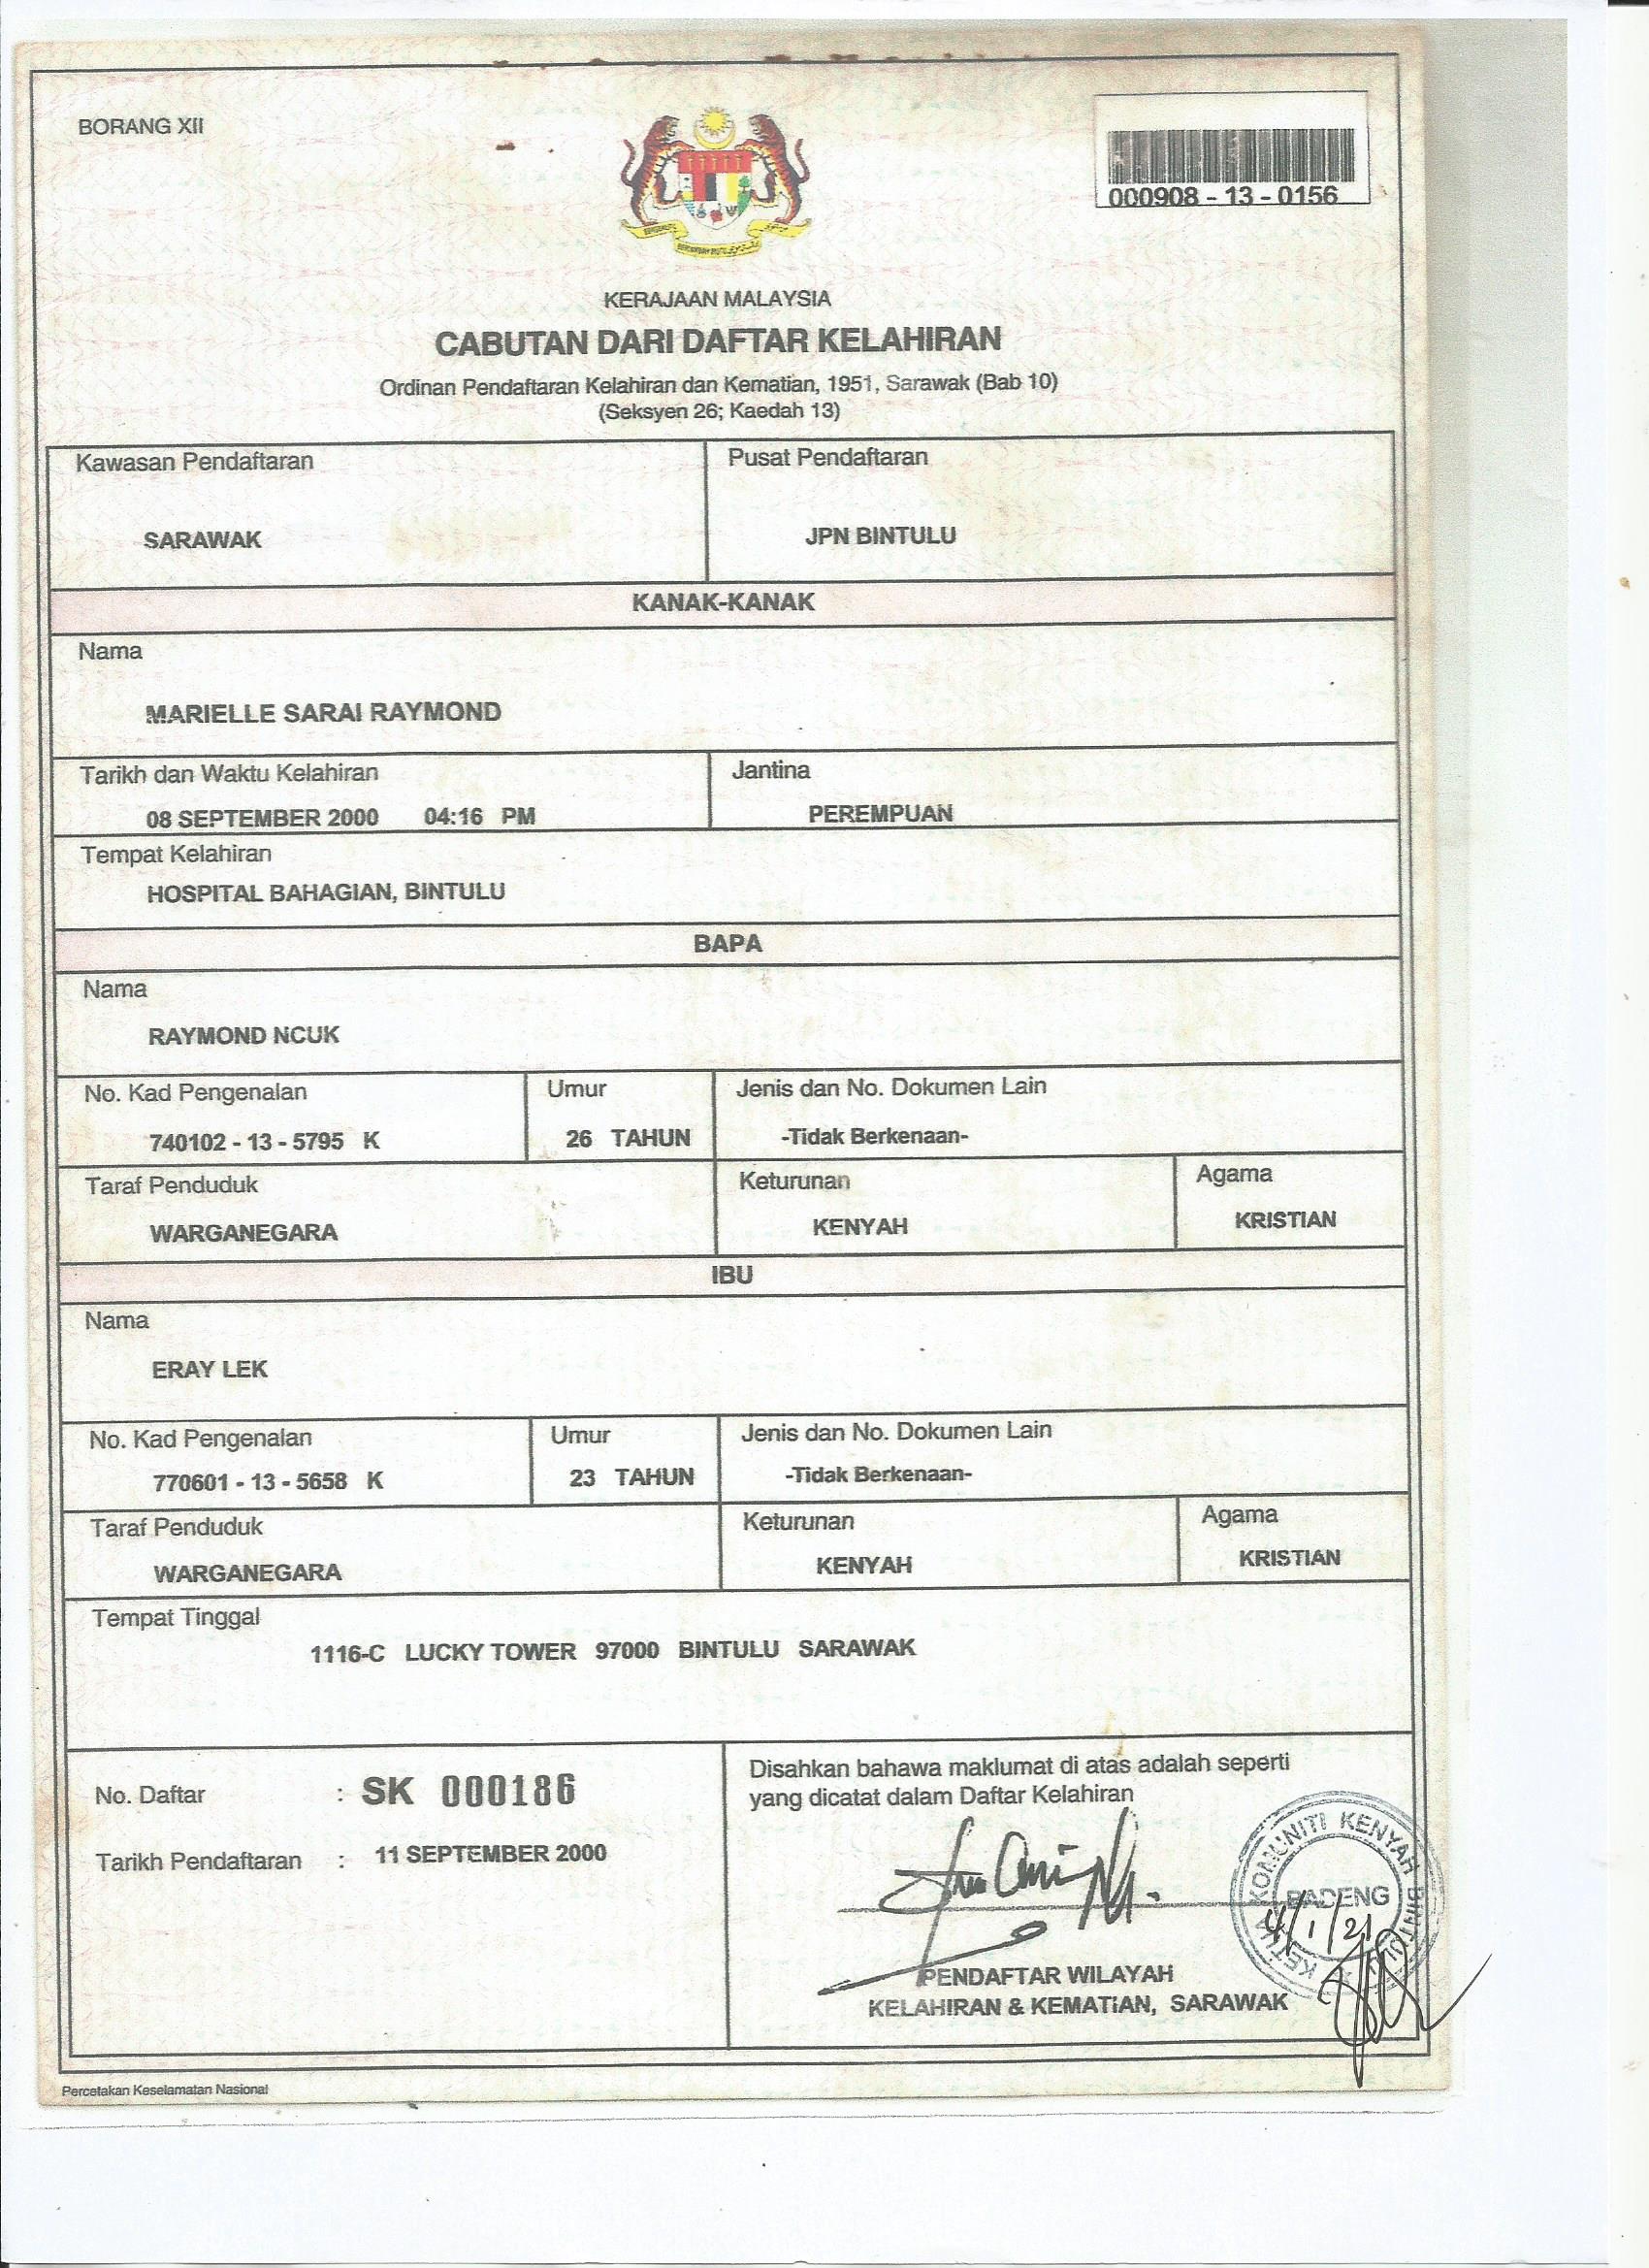 BORANG XII
000908 - 13 - 0156
KERAJAAN MALAYSIA
CABUTAN DARI DAFTAR KELAHIRAN
Ordinan Pendaftaran Kelahiran dan Kematian, 1951, Sarawak (Bab 10)
(Seksyen 26; Kaedah 13)
Kawasan Pendaftaran
Pusat Pendaftaran
SARAWAK
JPN BINTULU
KANAK-KANAK
Nama
MARIELLE SARAI RAYMOND
Tarikh dan Waktu Kelahiran
Jantina
08 SEPTEMBER 2000 04:16 PM
PEREMPUAN
Tempat Kelahiran
HOSPITAL BAHAGIAN, BINTULU
BAPA
Nama
RAYMOND NCUK
No. Kad Pengenalan
Umur
Jenis dan No. Dokumen Lain
740102 - 13 - 5795 K
26 TAHUN
-Tidak Berkenaan-
Taraf Penduduk
Keturunan
Agama
WARGANEGARA
KENYAH
KRISTIAN
IBU
Nama
ERAY LEK
No. Kad Pengenalan
Umur
Jenis dan No. Dokumen Lain
770601 - 13 - 5658 K
23 TAHUN
-Tidak Berkenaan-
Taraf Penduduk
Keturunan
Agama
WARGANEGARA
KENYAH
KRISTIAN
Tempat Tinggal
1116-C LUCKY TOWER 97000 BINTULU SARAWAK
No. Daftar : SK 000186
Tarikh Pendaftaran : 11 SEPTEMBER 2000
Disahkan bahawa maklumat di atas adalah seperti
yang dicatat dalam Daftar Kelahiran
KETUA KOMUNITI KENYAH BINTULU
BADENG
4/1/21
PENDAFTAR WILAYAH
KELAHIRAN & KEMATIAN, SARAWAK
Percetakan Keselamatan Nasional